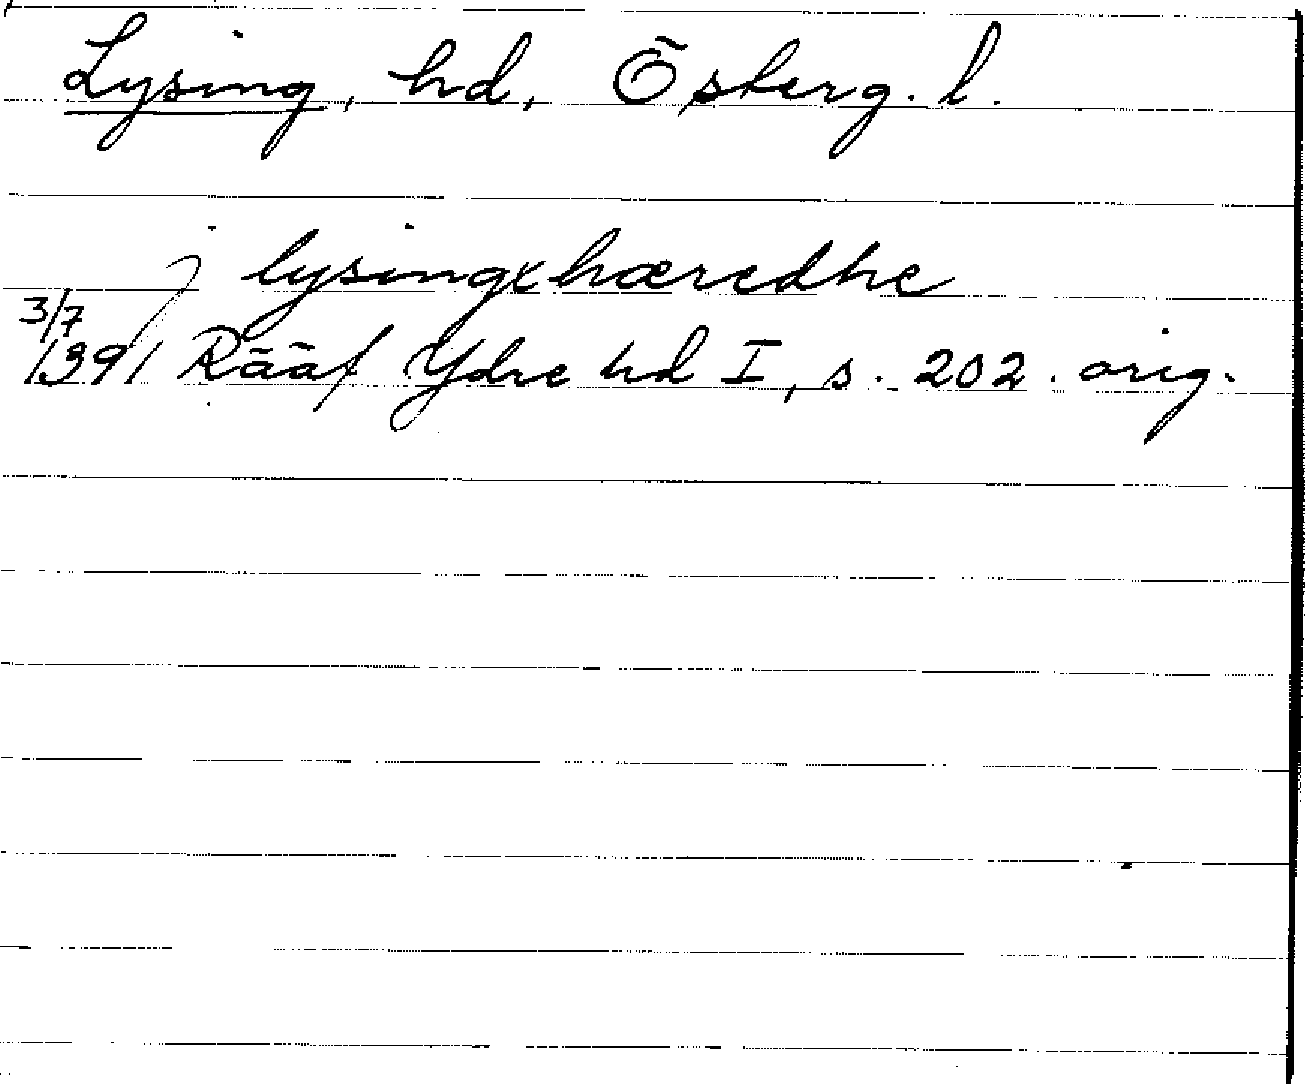 Lysing, hd, Österg. l.
j lysingxhæredhe
3/7
1391 Rääf Ydre hd I, s. 202. orig.